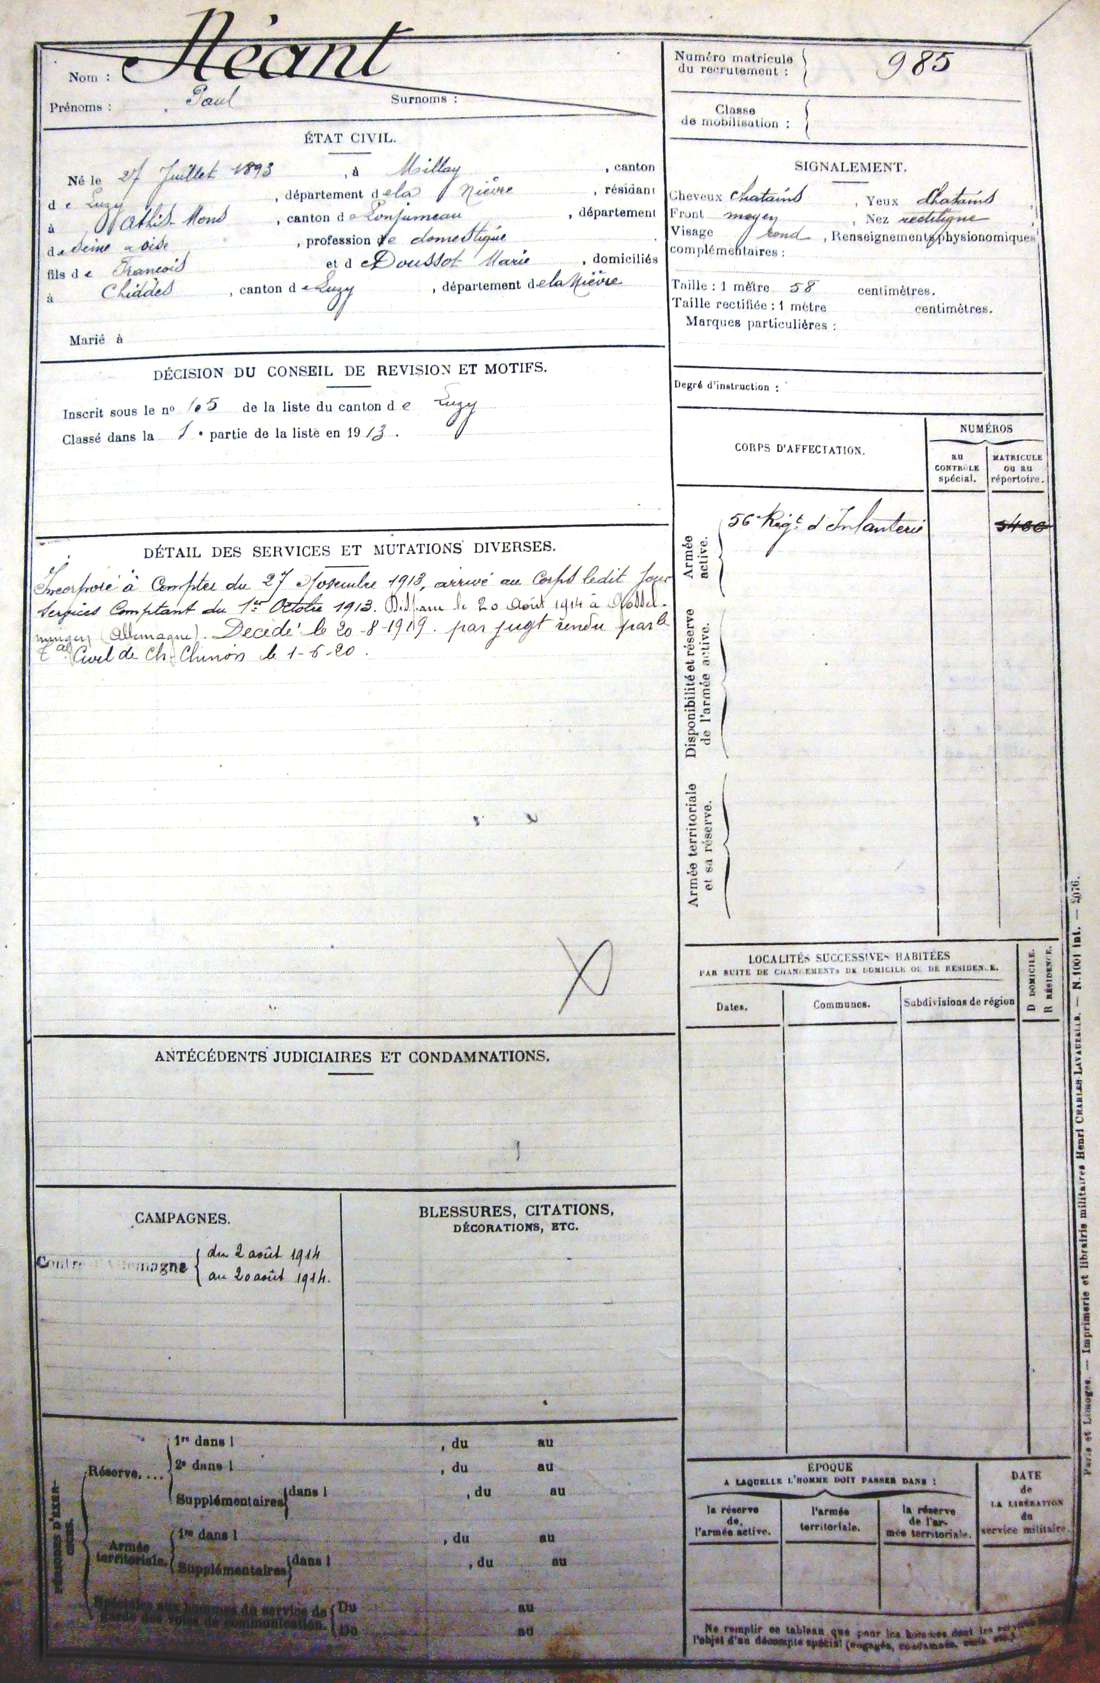 Nom : Néant
Prénoms : Paul Surnoms :
ÉTAT CIVIL.
Né le 27 Juillet 1893, à Millay, canton
de Luzy, département de la Nièvre, résidant
à Athis-Mons, canton de Lonjumeau, département
de Seine & Oise, profession de domestique
fils de François et de Doussot Marie, domiciliés
à Chiddes, canton de Luzy, département de la Nièvre
Marié à
DÉCISION DU CONSEIL DE REVISION ET MOTIFS.
Inscrit sous le nº 105 de la liste du canton de Luzy
Classé dans la 1e partie de la liste en 1913.
DÉTAIL DES SERVICES ET MUTATIONS DIVERSES.
Incorporé à Compter du 27 Novembre 1913, arrivé au Corps ledit Jour
Services Comptant du 1er Octobre 1913. Disparu le 20 Août 1914 à
(Allemagne). Décédé le 20-8-1919. par jugt rendu par le
Tal Civil de Ch. Chinon le 1-6-20.
ANTÉCÉDENTS JUDICIAIRES ET CONDAMNATIONS.
CAMPAGNES.
Contre l'Allemagne { du 2 août 1914
au 20 août 1914.
BLESSURES, CITATIONS,
DÉCORATIONS, ETC.
PÉRIODES D'EXERCICES.
Réserve....
1re dans l , du au
2e dans l , du au
Supplémentaires { dans l , du au
Armée
territoriale.
1re dans l , du au
Supplémentaires { dans l , du au
Spéciales aux hommes du service de
garde des voies de communication.
Du au
Du au
Numéro matricule
du recrutement : 985
Classe
de mobilisation :
SIGNALEMENT.
Cheveux chatains, Yeux chatains
Front moyen, Nez rectiligne
Visage rond, Renseignements physionomiques
complémentaires :
Taille : 1 mètre 58 centimètres.
Taille rectifiée : 1 mètre centimètres.
Marques particulières :
Degré d'instruction :
CORPS D'AFFECTATION.
NUMÉROS
AU
CONTRÔLE
spécial.
MATRICULE
OU AU
répertoire.
Armée
active.
56e Régt d'Infanterie
Disponibilité et réserve
de l'armée active.
Armée territoriale
et sa réserve.
LOCALITÉS SUCCESSIVES HABITÉES
PAR SUITE DE CHANGEMENTS DE DOMICILE OU DE RÉSIDENCE.
Dates.
Communes.
Subdivisions de région
D DOMICILE.
R RÉSIDENCE.
ÉPOQUE
A LAQUELLE L'HOMME DOIT PASSER DANS :
la réserve
de
l'armée active.
l'armée
territoriale.
la réserve
de l'ar-
mée territoriale.
DATE
de
LA LIBÉRATION
du
service militaire.
Ne remplir ce tableau que pour les hommes dont les services
l'objet d'un décompte spécial (engagés, condamnés,
Paris et Limoges. — Imprimerie et librairie militaires Henri CHARLES-LAVAUZELLE. — N. 1001 int. — 2076.